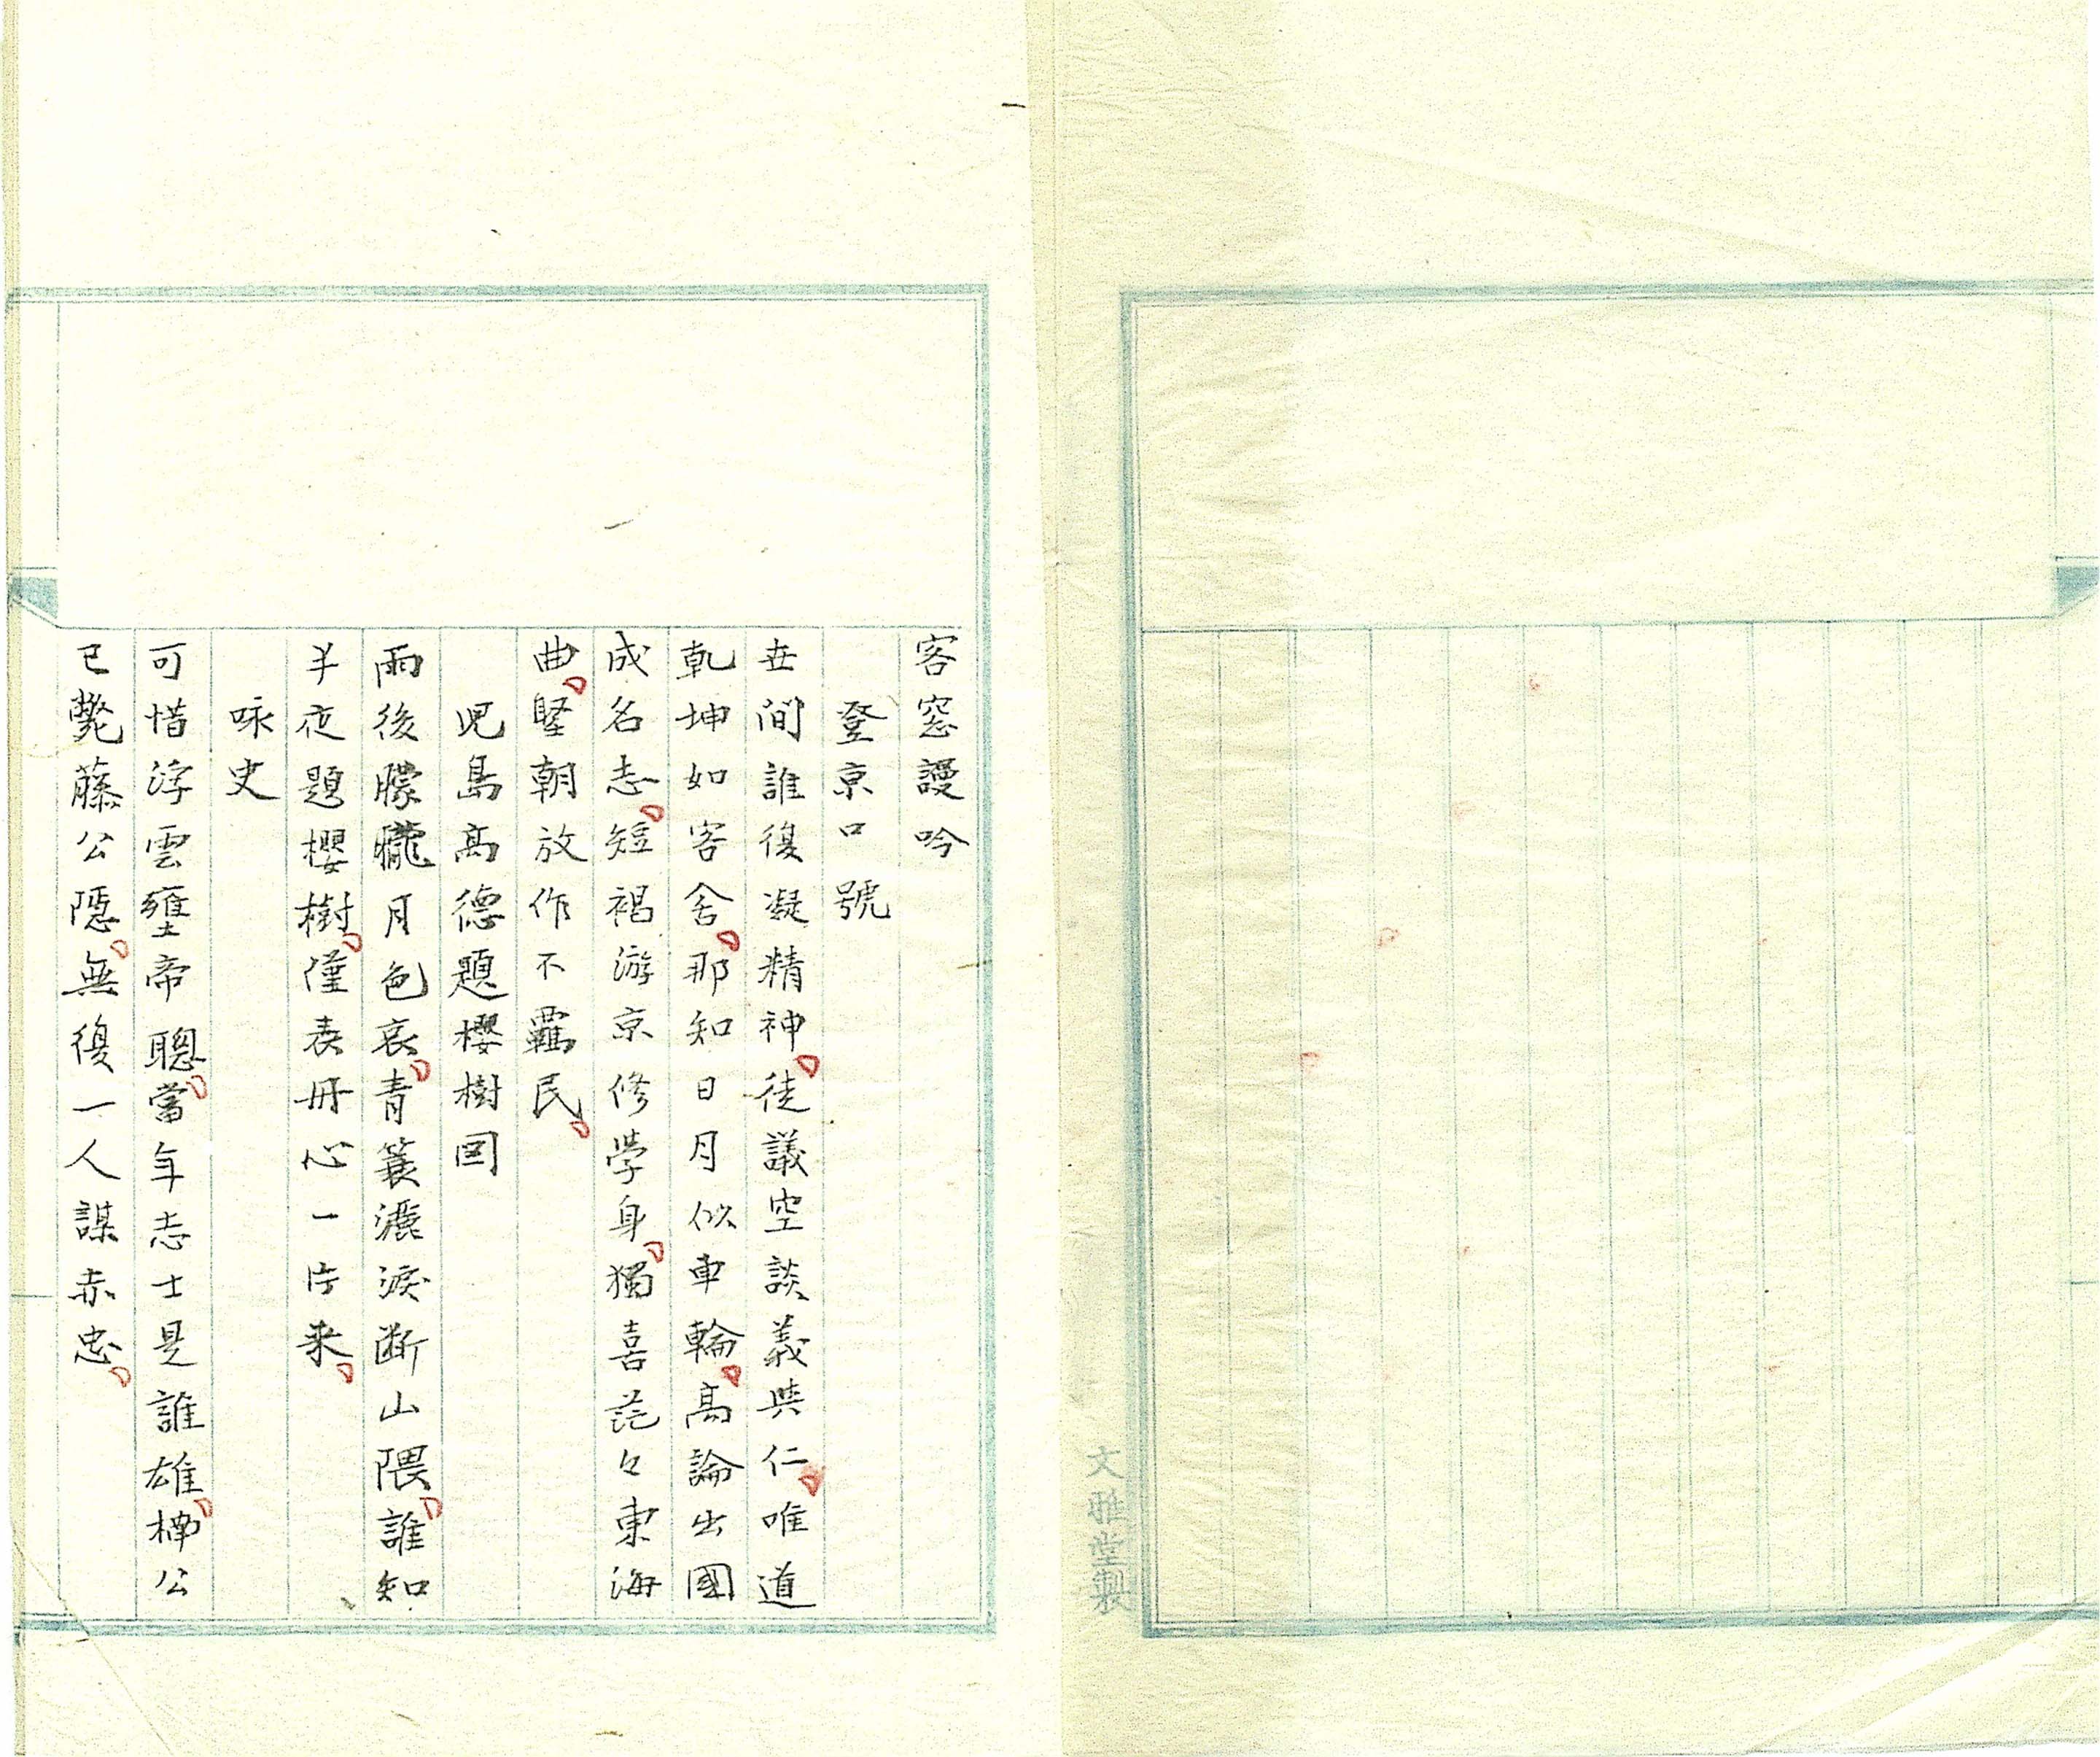 客窓謾吟
登京口號
世間誰復凝精神徒議空談義與仁唯道
乾坤如客舎那知日月似車輪高論出國
成名志短褐游京修學身獨喜茫々東海
曲堅朝放作不羈民
児島高德題櫻樹図
雨後朦朧月色哀青簑灑淚断山隈誰知
半夜題櫻樹僅表丹心一片来
咏史
可惜浮雲壅帝聰當年志士是誰雄楠公
已斃藤公隠無復一人謀赤忠
文雅堂製